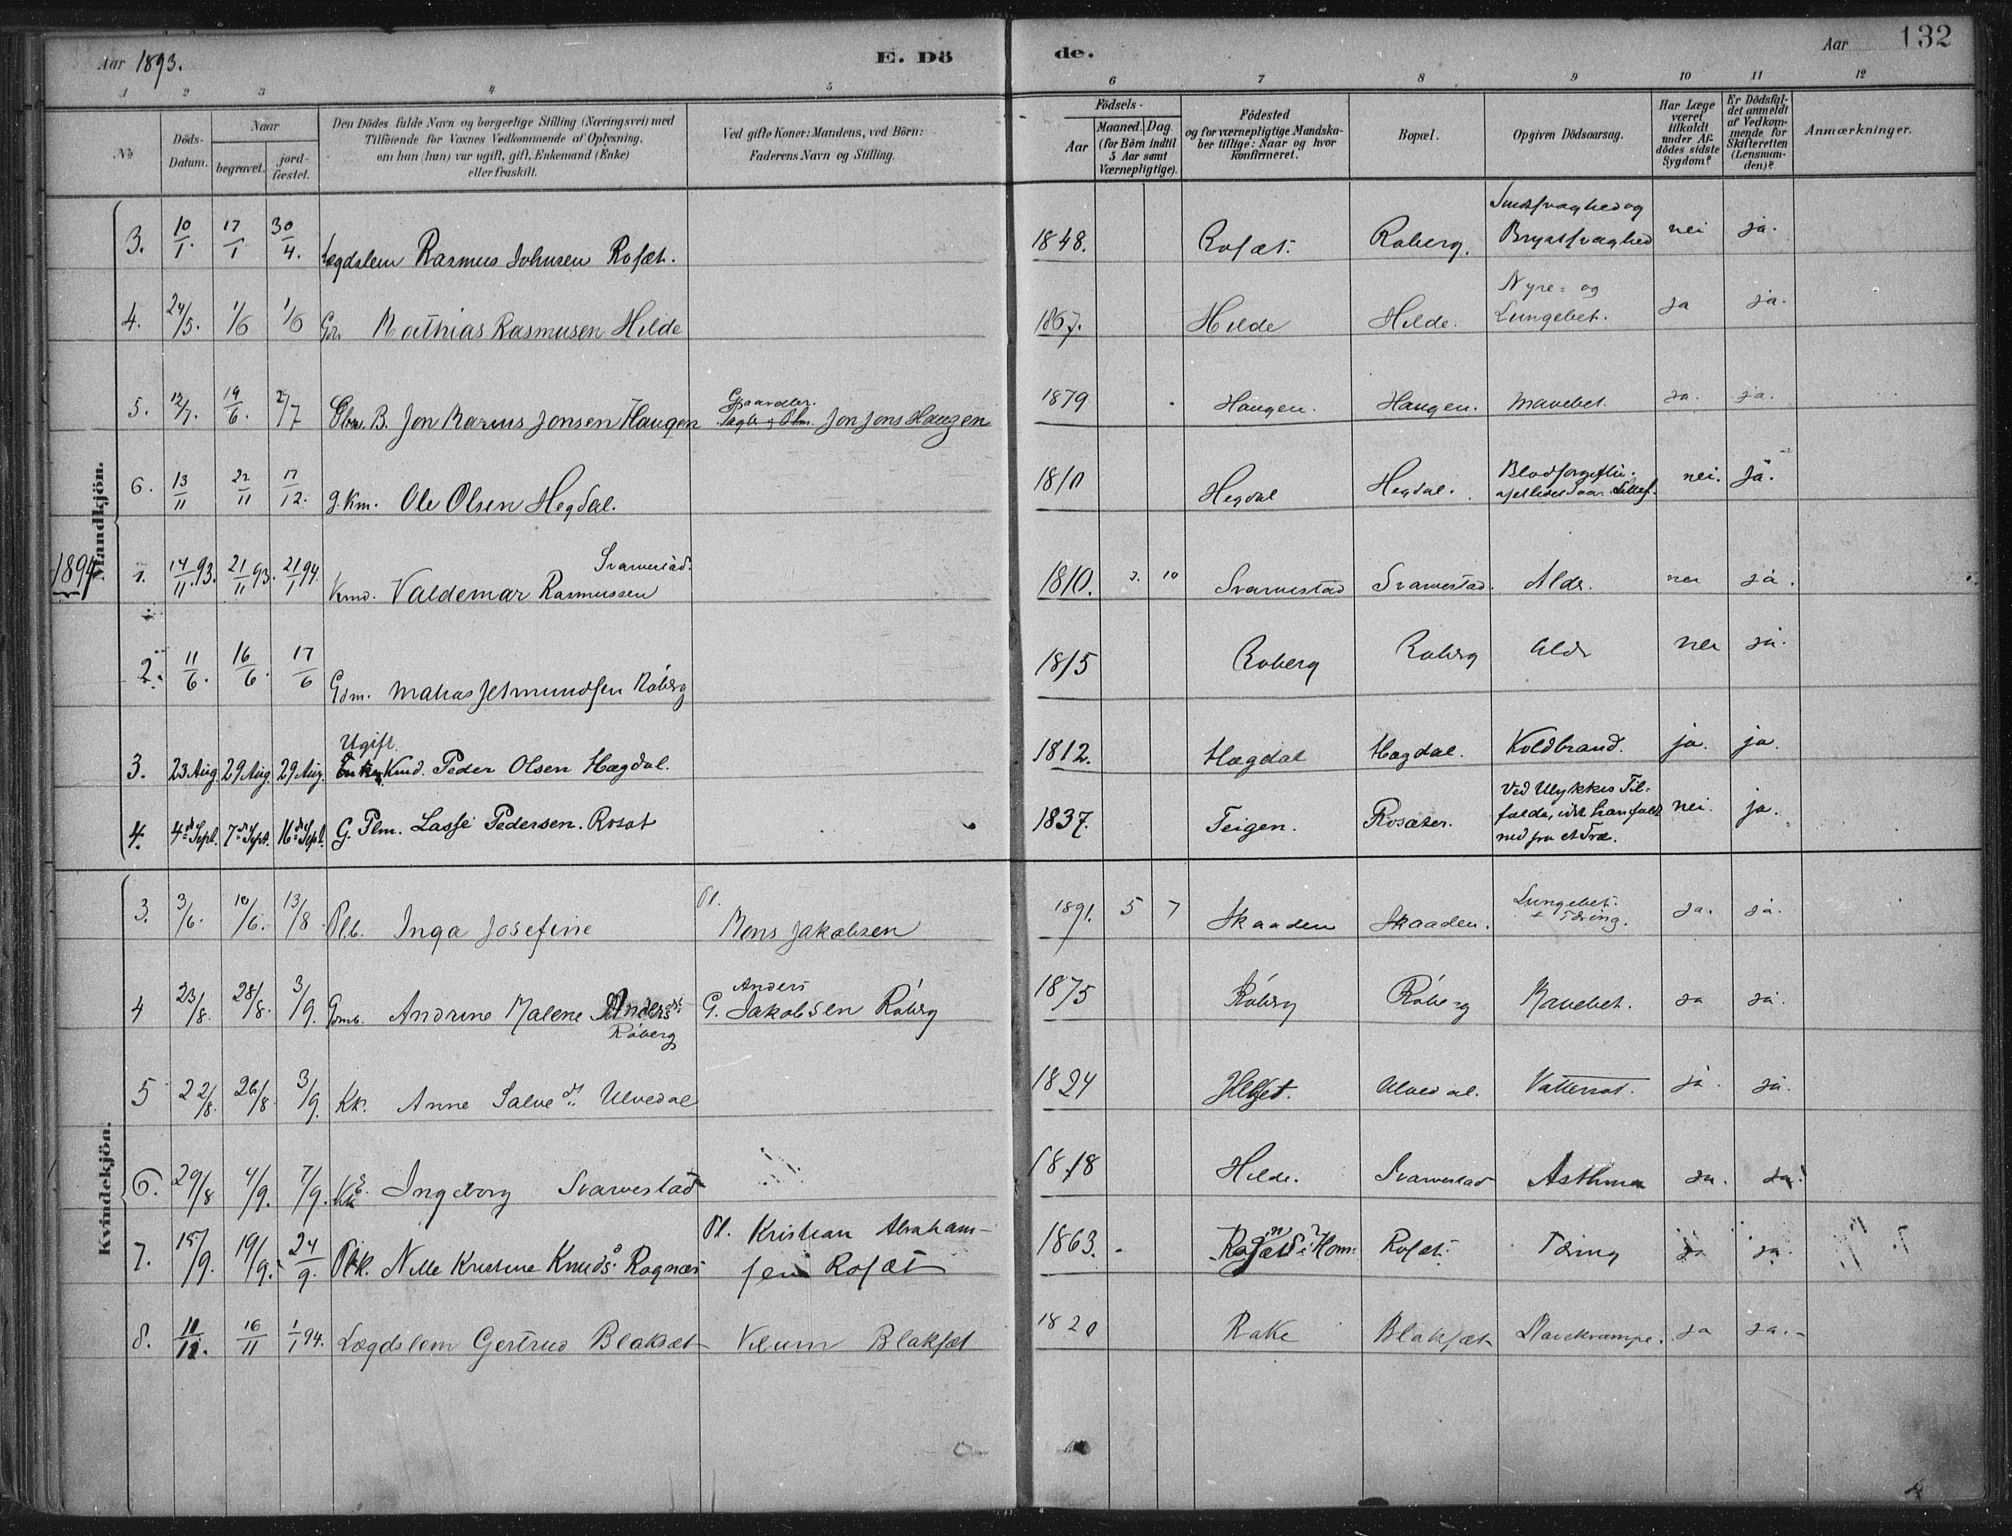 Aar 1893. E. Dö de. Aar 132
1 2 3 4 5 6 7 8 9 10 11 12
No
Döds-Datum.
Naar
begravet.
jord-fæstet.
Den Dödes fulde Navn og borgerlige Stilling (Næringsvei) med
Tilföiende for Voxnes Vedkommende af Oplysning,
om han (hun) var ugift, gift, Enkemand (Enke)
eller fraskilt.
Ved gifte Koner: Mandens, ved Börn:
Faderens Navn og Stilling.
Födsels-
Aar
Maaned. Dag.
(for Börn indtil
5 Aar samt
Værnepligtige).
Födested
og for værnepligtige Mandska-
ber tillige: Naar og hvor
konfirmeret.
Bopæl.
Opgiven Dödsaarsag.
Har Læge
været
tilkaldt
under Af-
dödes sidste
Sygdom?
Er Dödsfal-
det anmeldt
af Vedkom-
mende for
Skifteretten
(Lensman-
den)?
Anmærkninger.
Mandkjön.
3. 10/1. 17/1 30/4. Lægdslem Rasmus Johnsen Rosæt. 1848. Rosæt. Roberg. Sindssvaghed og Brystsvaghed nei ja.
4. 24/5. 1/6 1/6 Mathias Rasmusen Hilde 1867. Hilde Hilde. Nyre- og Lungebet. ja ja.
5. 12/7. 19/6. 2/7 B. Jon Marius Jonsen Haugen Gaardbr. Jon Jons Haugen 1879 Haugen. Haugen. Mavebet. ja. ja.
6. 13/11 22/11 17/12. g. Km. Ole Olsen Hegdal. 1810 Hegdal Hegdal. Blodforgiftn. nei. ja.
1894
1. 14/11.93. 21/11 93. 21/1 94. Kmd. Valdemar Rasmussen Svarvestad. 1810. 2. 10 Svarvestad Svarvestad. Aldr. nei ja.
2. 11/6. 16/6. 17/6 Gdm. Matias Jetmundsen Róberg 1815 Roberg Roberg Aldr nei ja.
3. 23 Aug 29 Aug. 29 Aug. Ugift. Kmd. Peder Olsen Hægdal. 1812. Hægdal Hægdal. Koldbrand. ja. ja.
4. 4de Sept. 7de Sept. 16de Sept. G. Plm. Lasse Pedersen. Rosæt 1837. Teigen. Rosæter. Ved Ulykkes Til-
falde, idet han faldt
ned fra et Træ. nei. ja.
Kvindekjön.
3. 3/6. 10/6. 13/8 Plb. Inga Josefine Pl. Mons Jakobsen 1891. 5 7 Skaaden Skaaden. Lungebet. + Tæring. ja. ja.
4 23/8. 28/8. 3/9. Gmb. Andrine Malene Andersdt. Róberg G. Anders Jakobsen Róberg 1875 Róberg Róberg Mavebet. ja ja.
5 22/8. 26/8 3/9. Kk. Anne Salvedt. Ulvedal 1824 Helset. Ulvedal. Vattersot. ja. ja.
6. 29/8 4/9. 7/9. Ingeborg Svarvestad 1818 Hilde. Svarvestad Asthma ja. ja.
7. 15/9. 19/9. 24/9. Plk. Nille Kristine Knudsd. Ragnæs Pl. Kristian Abraham-
sen Rosæt 1863. Rosæt. Tæring ja ja.
8. 10/11. 16/11 1/1 94. Lægdslem Gertrud Blaksæt Blaksæt 1820 Rake Blaksæt Mavekrampe. ja ja.